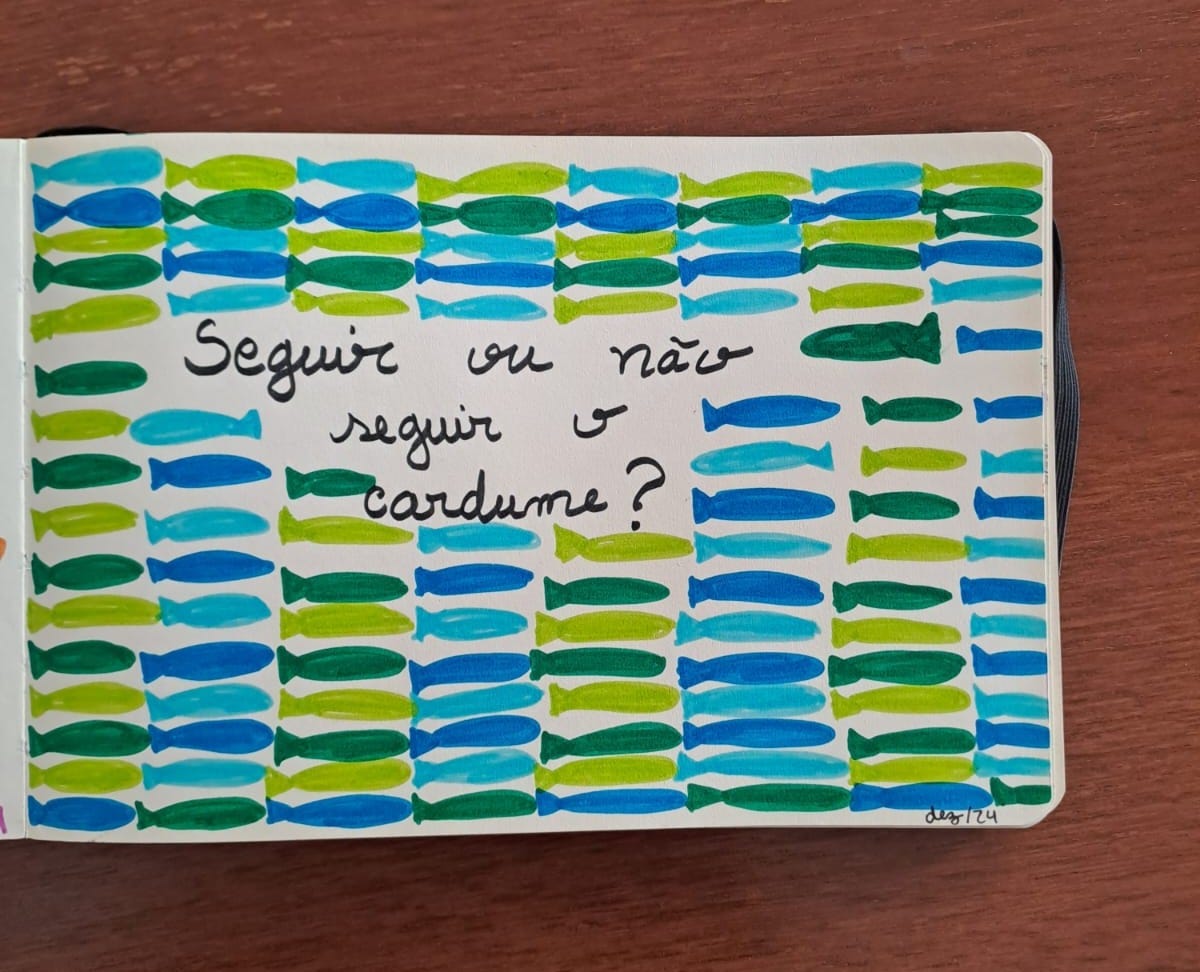 Seguir ou não
seguir o
cardume?
dez/24